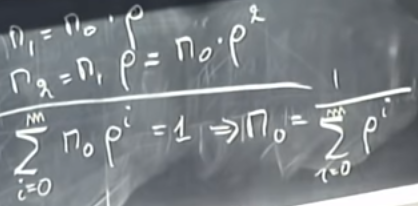 Π₁ = Π₀ · ρ
Π₂ = Π₁ ρ = Π₀ · ρ²
∑_{i=0}^{m} Π₀ ρ^i = 1 ⇒ Π₀ = 1 / ∑_{i=0}^{m} ρ^i